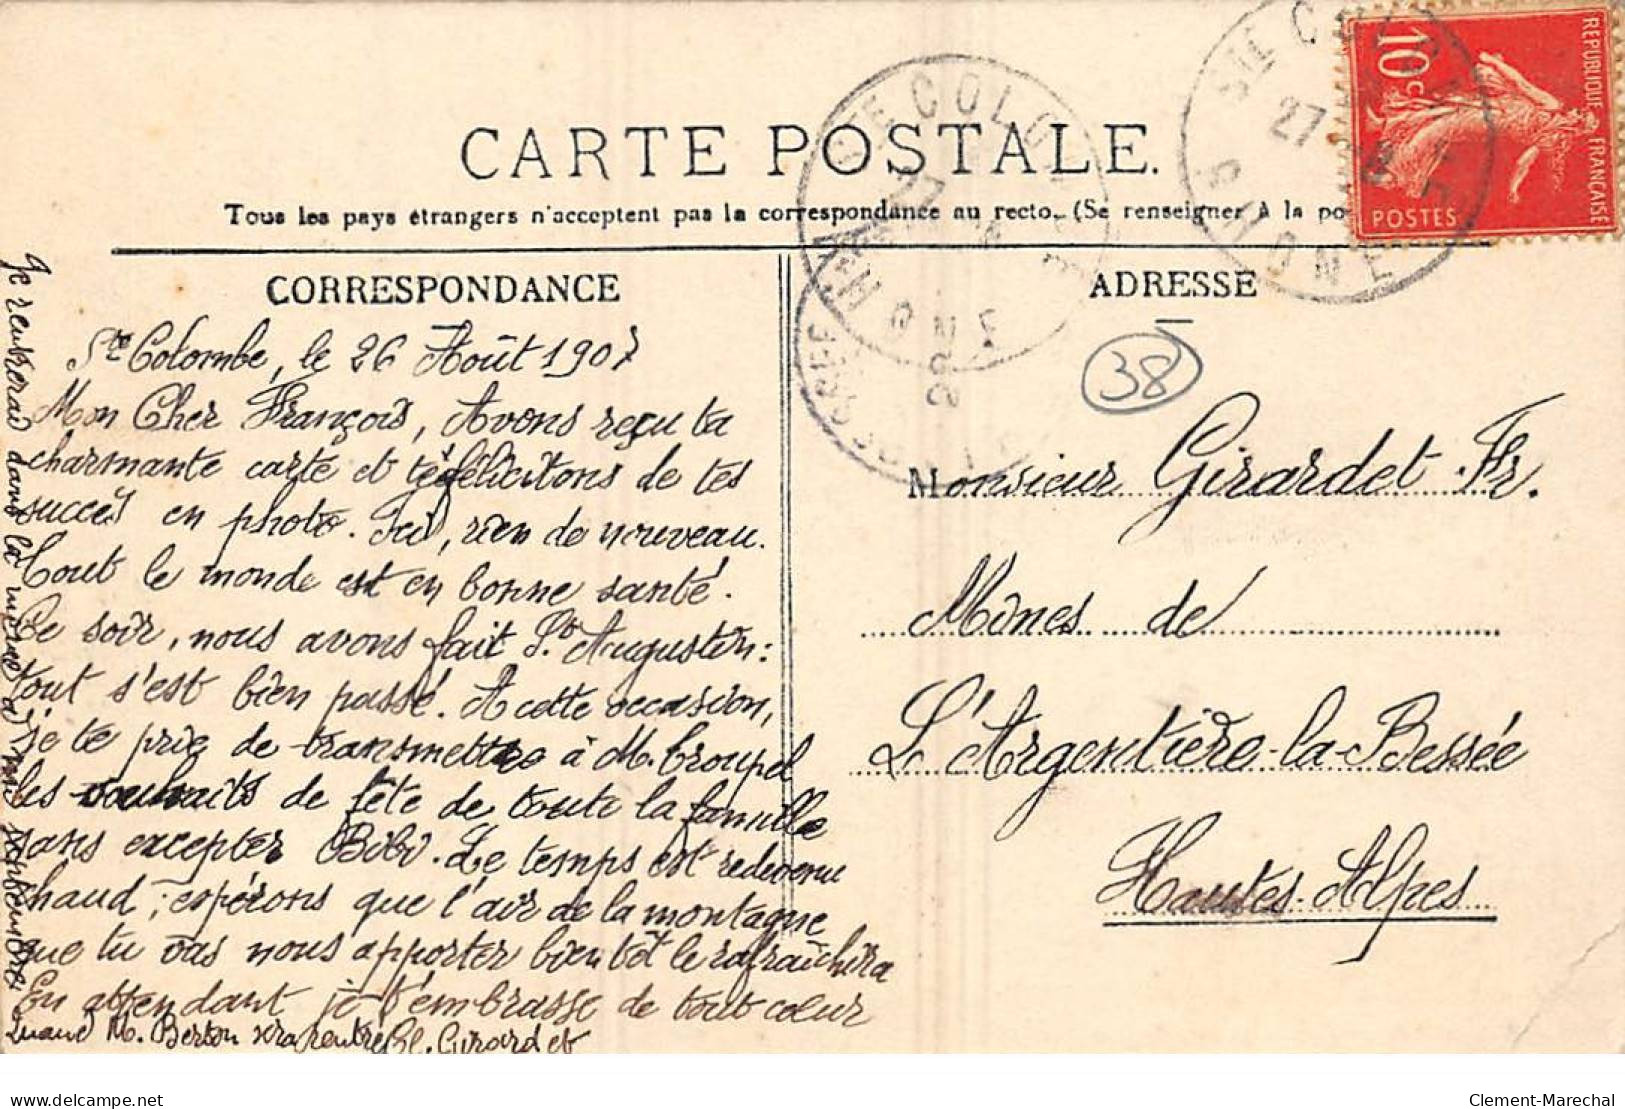 CARTE POSTALE.
Tous les pays étrangers n'acceptent pas la correspondance au recto. (Se renseigner à la po
CORRESPONDANCE
Ste Colombe, le 26 Août 1907
Mon Cher François, Avons reçu ta
charmante carte et te félicitons de tes
succès en photo. Ici, rien de nouveau.
Tout le monde est en bonne santé.
Ce soir, nous avons fait St Augustin:
tout s'est bien passé. A cette occasion,
je te prie de transmettre à M. Croupel
les souhaits de fête de toute la famille
sans excepter Bibi. Le temps est redevenu
chaud; espérons que l'air de la montagne
que tu vas nous apporter bientôt le rafraîchira
En attendant je t'embrasse de tout cœur
Quand M. Berton sera rentré Cl. Girardet
Je rentrerai dans la mi septembre
ADRESSE
38
Monsieur Girardet Fr.
Mines de
L'Argentière-la-Bessée
Hautes-Alpes
REPUBLIQUE FRANÇAISE
10c
POSTES
STE COLOMBE
27 -8
RHONE
STE COLO
27 8
RHONE
delcampe.net
Clement-Marechal